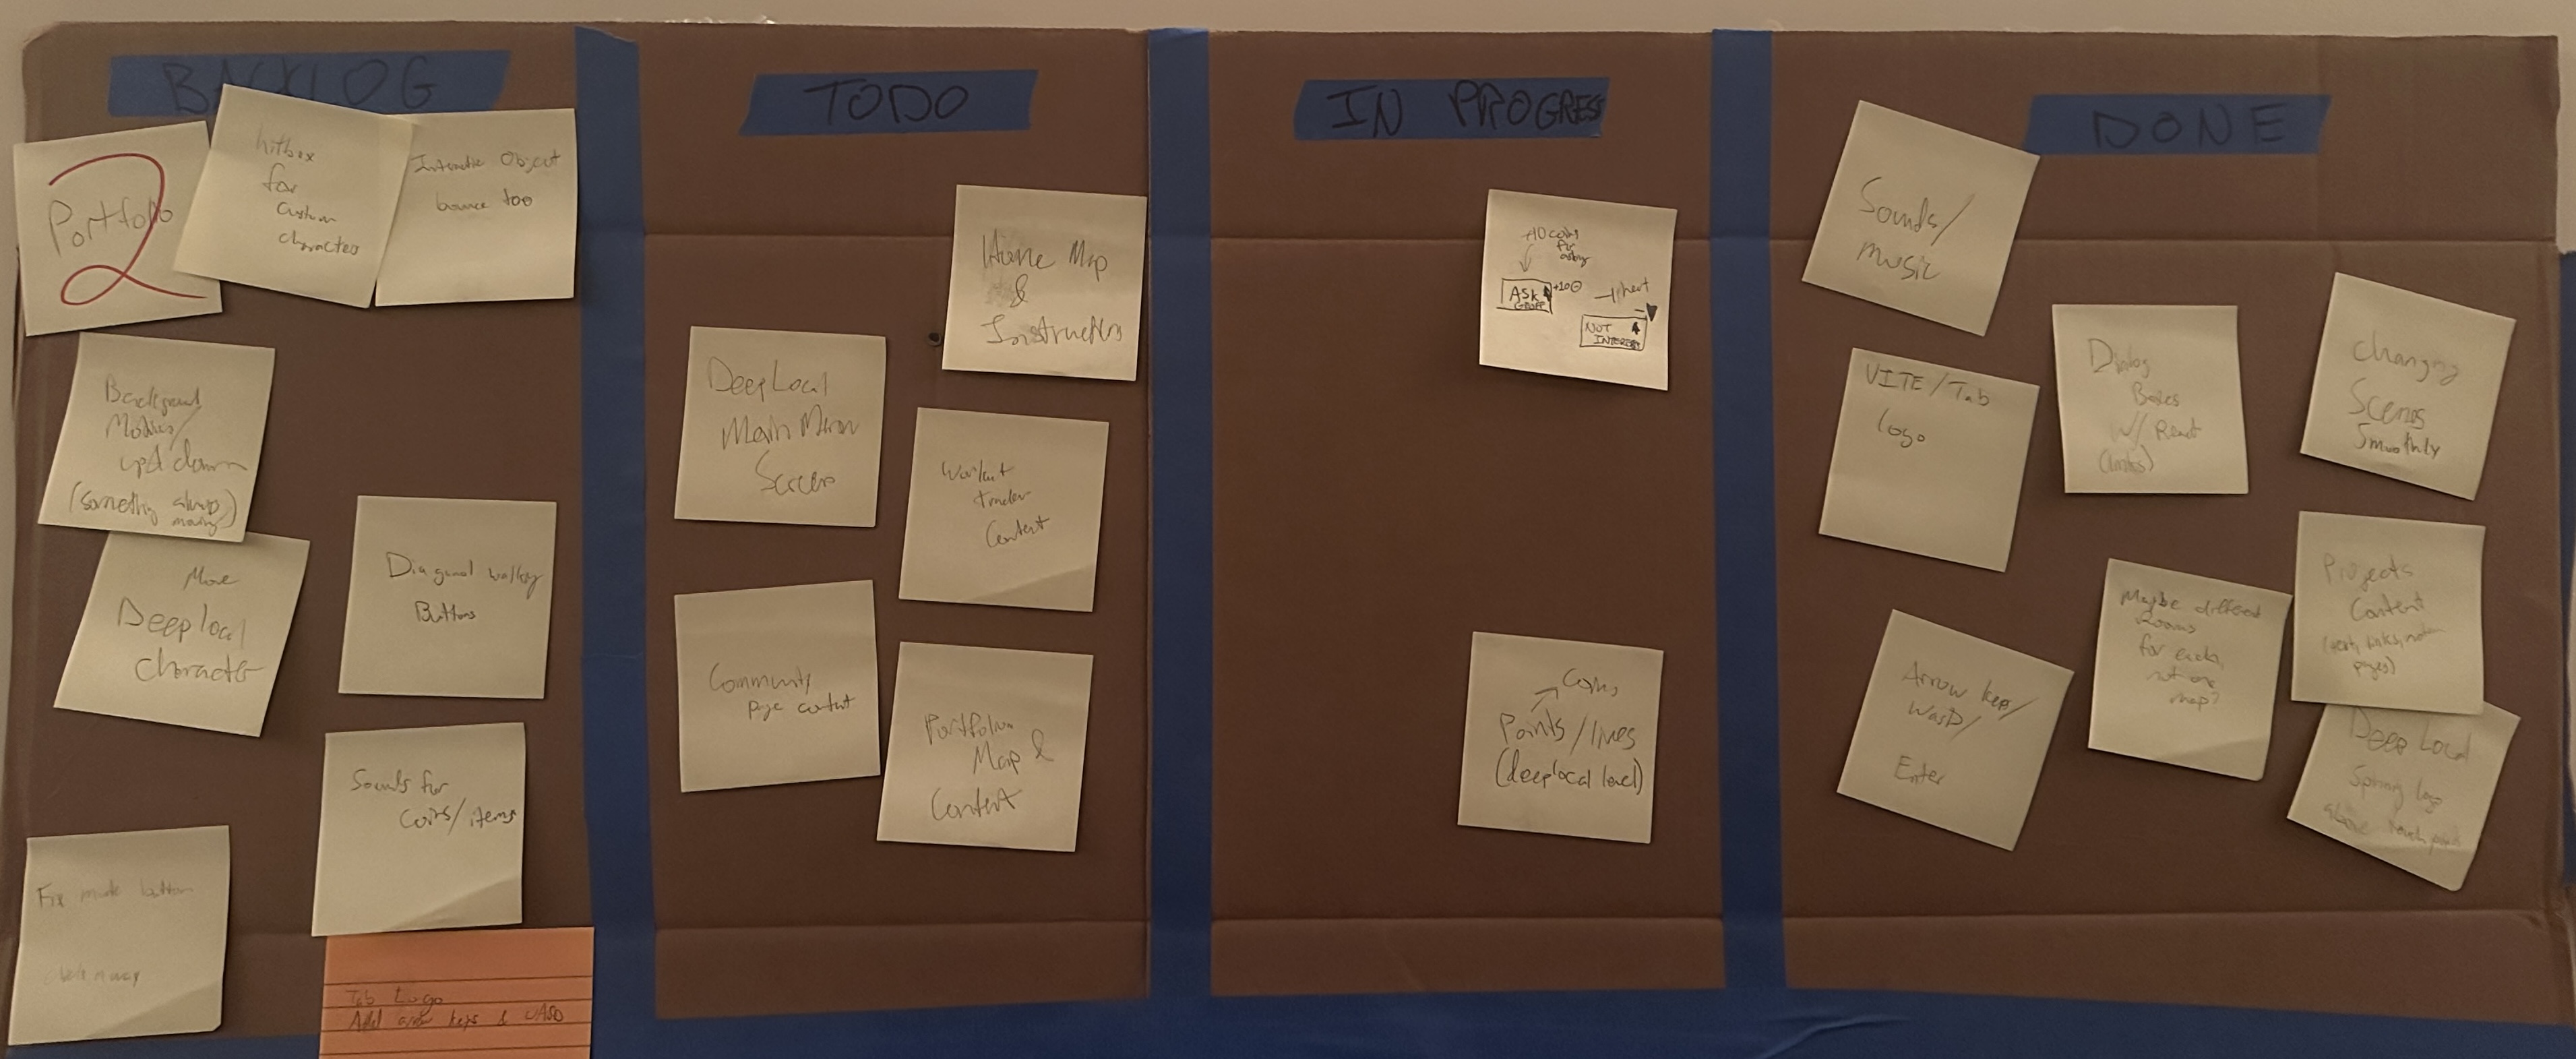 BACKLOG
Portfolio
2
hitbox
for
custom
characters
Interactive Object
bounce too
Background
Modules/
up & down
(something always
moving)
Move
Deeplocal
character
Diagonal walking
Buttons
Sounds for
coins/items
Fix mute button
Tab Logo
Add arrow keys & WASD
TODO
Home Map
&
Instructions
DeepLocal
Main Menu
Screen
Workout
Tracker
Content
Community
page content
Portfolio
Map &
Content
IN PROGRESS
+10 coins
for
asking
ASK
+10
-1 heart
NOT
INTEREST
Coins
Points/lives
(deeplocal level)
DONE
Sounds/
music
VITE/Tab
logo
Dialog
Boxes
w/ React
(links)
Changing
Scenes
Smoothly
Arrow keys/
WASD/
Enter
Maybe different
Rooms
for each,
not one
map?
Projects
Content
(text, links, notion
pages)
Deep Local
Spring logo
above touch points